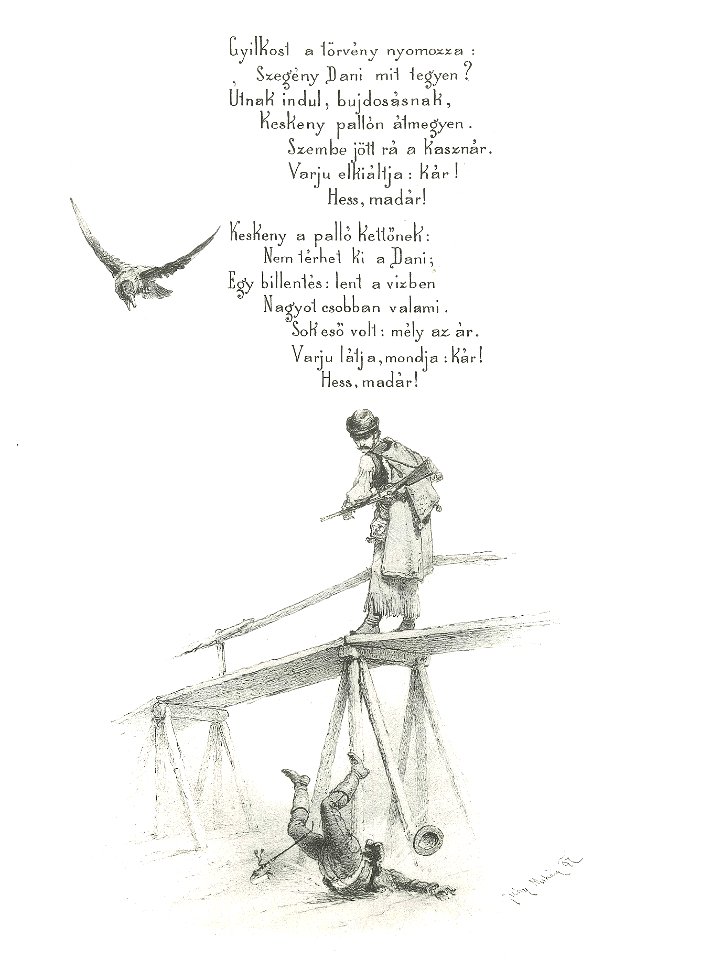 Gyilkost a törvény nyomozza:
Szegény Dani mit tegyen?
Útnak indul, bujdosásnak,
Keskeny pallón átmegyen.
Szembe jött rá a kasznár.
Varju elkiáltja: kár!
Hess, madár!
Keskeny a palló kettőnek:
Nem térhet ki a Dani;
Egy billentés: lent a vizben
Nagyot csobban valami.
Sok eső volt: mély az ár.
Varju látja, mondja: kár!
Hess, madár!